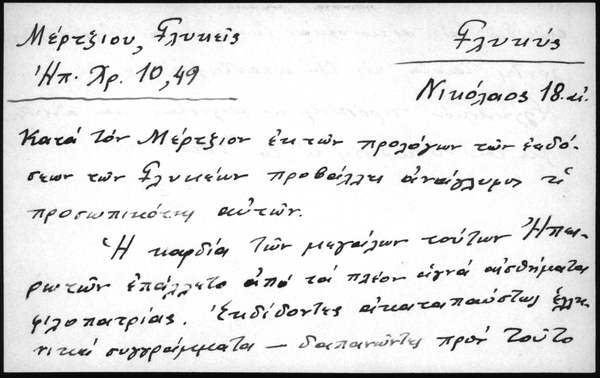 Μέρτζιου, Γλυκεῖς
Γλυκύς
Ἠπ. Χρ. 10,49
Νικόλαος 18. αἰ.
Κατά τόν Μέρτζιον ἐκ τῶν προλόγων τῶν ἐκδό-
σεων τῶν Γλυκέων προβάλλει ἀνάγλυφος ἡ
προσωπικότης αὐτῶν.
Ἡ καρδία τῶν μεγάλων τούτων Ἠπει-
ρωτῶν ἐπάλλετο ἀπό τά πλέον ἁγνά αἰσθήματα
φιλοπατρίας. Ἐκδίδοντες ἀκαταπαύστως ἑλλη-
νικά συγγράμματα — δαπανῶντες πρός τοῦτο